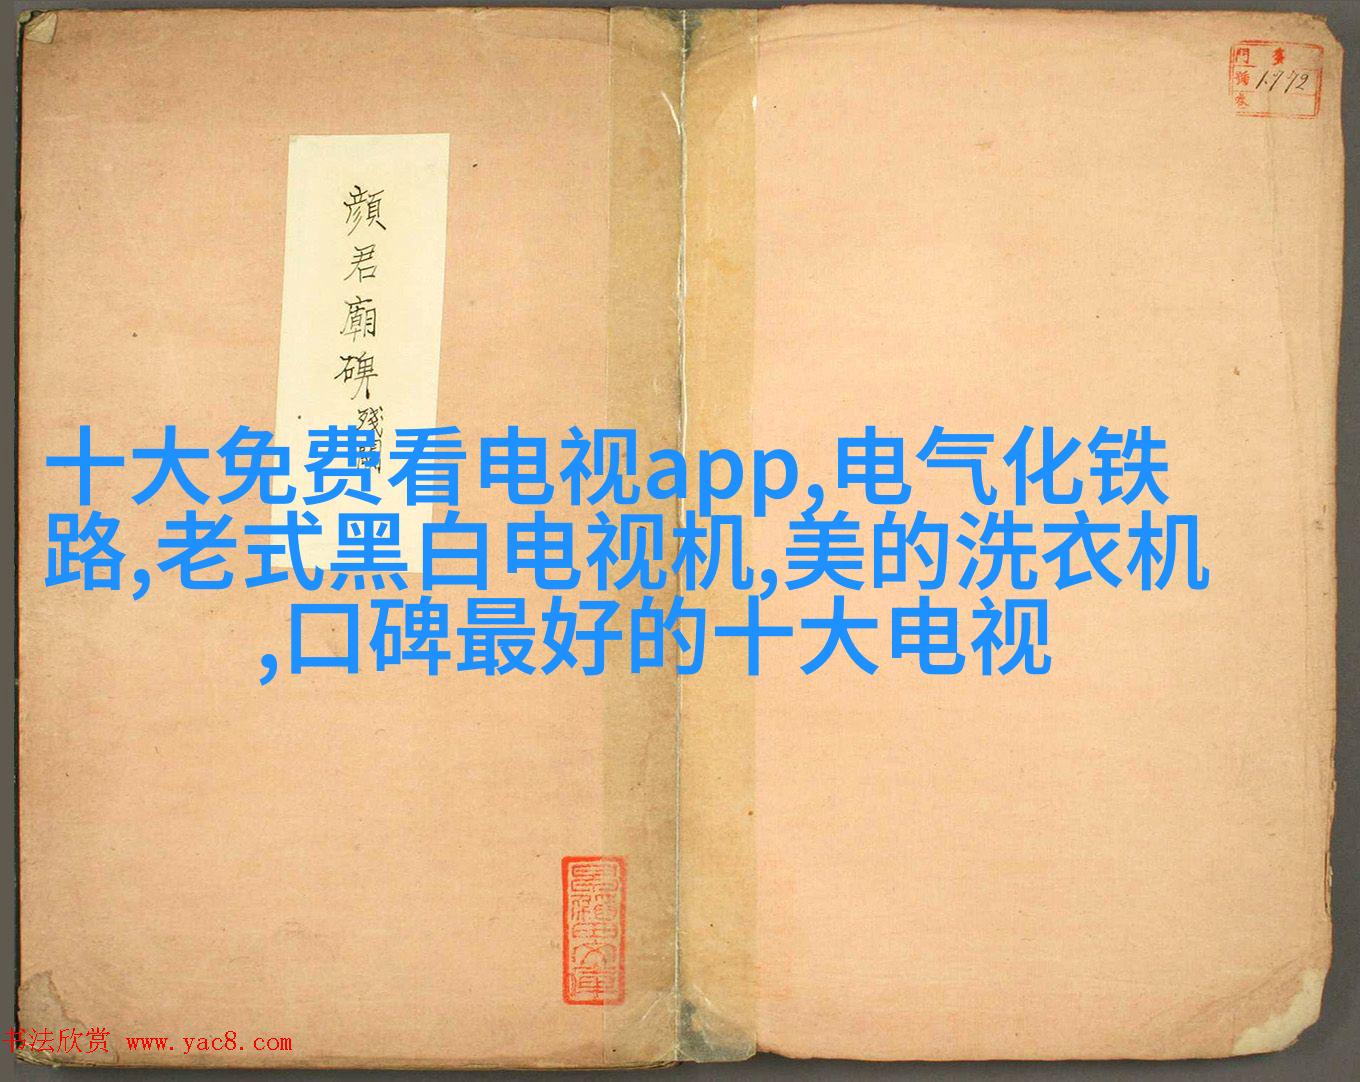 十大免费看电视app,电气化铁
路,老式黑白电视机,美的洗衣机
,口碑最好的十大电视
顏君廟碑殘闕
門
號 1772
书法欣赏 www.yac8.com